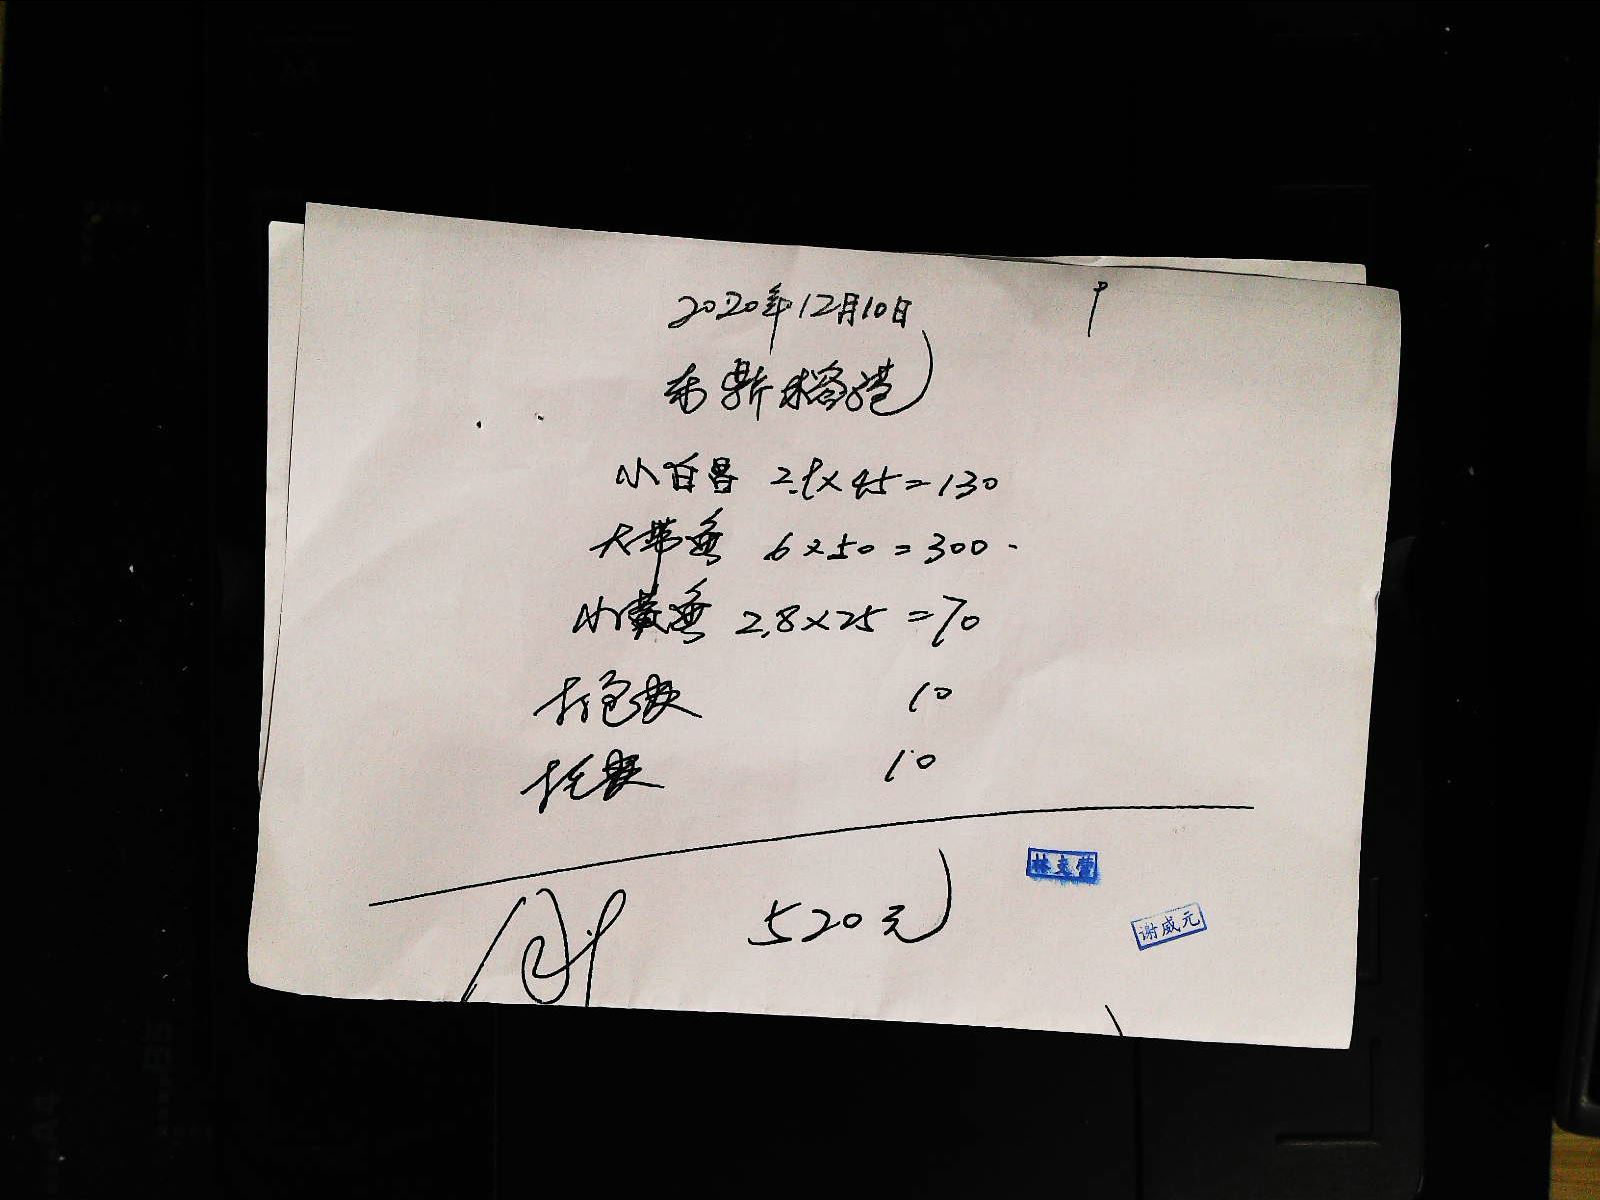 2020年12月10日
小白昌 2.9×45=130
大带鱼 6×50=300
小黄鱼 2.8×25=70
打包费 10
托费 10
520元
林支营
谢威元